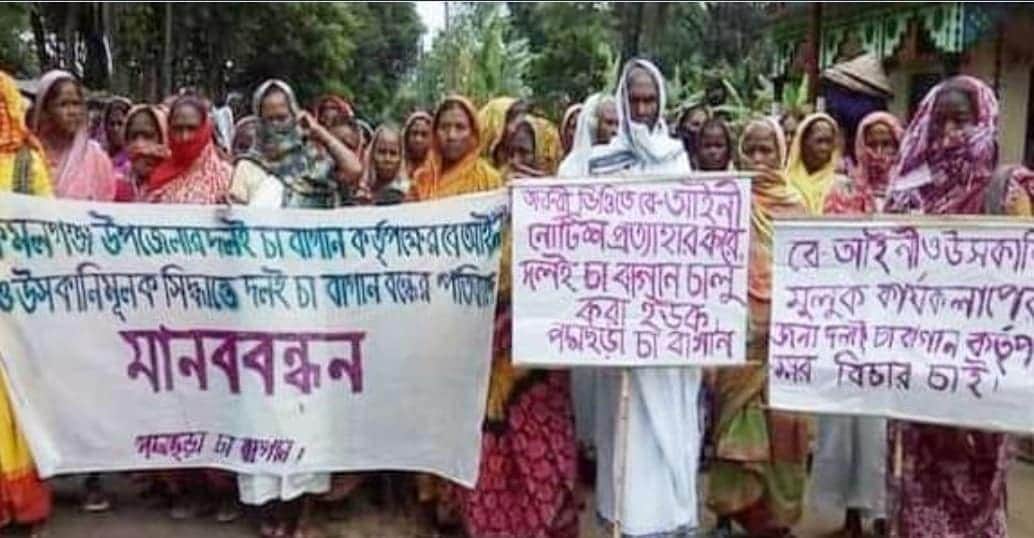 কমলগঞ্জ উপজেলার দলই চা বাগান কর্তৃপক্ষের বে আইনি
ও উস্কানিমূলক সিদ্ধান্তে দলই চা বাগান বন্ধের প্রতিবাদে
মানববন্ধন
পদ্মছড়া চা বাগান।
জরুরী ভিত্তিতে বে-আইনী
নোটিশ প্রত্যাহার করে
দলই চা বাগান চালু
করা হউক,
পদ্মছড়া চা বাগান
বে-আইনী ও উসকানি
মুলুক কার্যকলাপের
জন্য দলই চা বাগান কর্তৃপ
ক্ষের বিচার চাই।